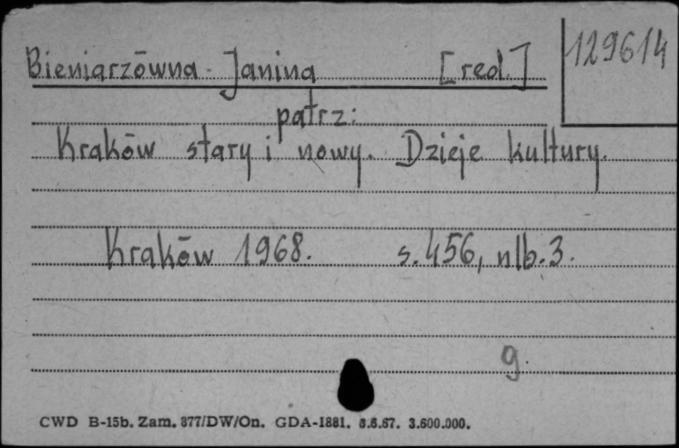 129614
Bieniarzówna Janina [red.]
patrz:
Kraków stary i nowy. Dzieje kultury.
Kraków 1968. s. 456, nlb. 3.
g.
CWD B-15b. Zam. 877/DW/On. GDA-1881. 8.6.67. 3.600.000.